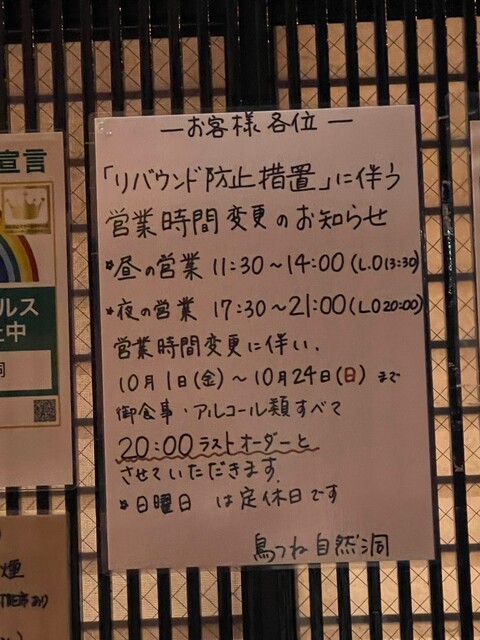 ―お客様各位―
「リバウンド防止措置」に伴う
営業時間変更のお知らせ
*昼の営業 11:30～14:00(L.O 13:30)
*夜の営業 17:30～21:00(L.O 20:00)
営業時間変更に伴い、
10月1日(金)～10月24日(日)まで
御食事・アルコール類すべて
20:00ラストオーダーと
させていただきます。
*日曜日 は定休日です
鳥つね自然洞
宣言
ルス
中
洞
煙